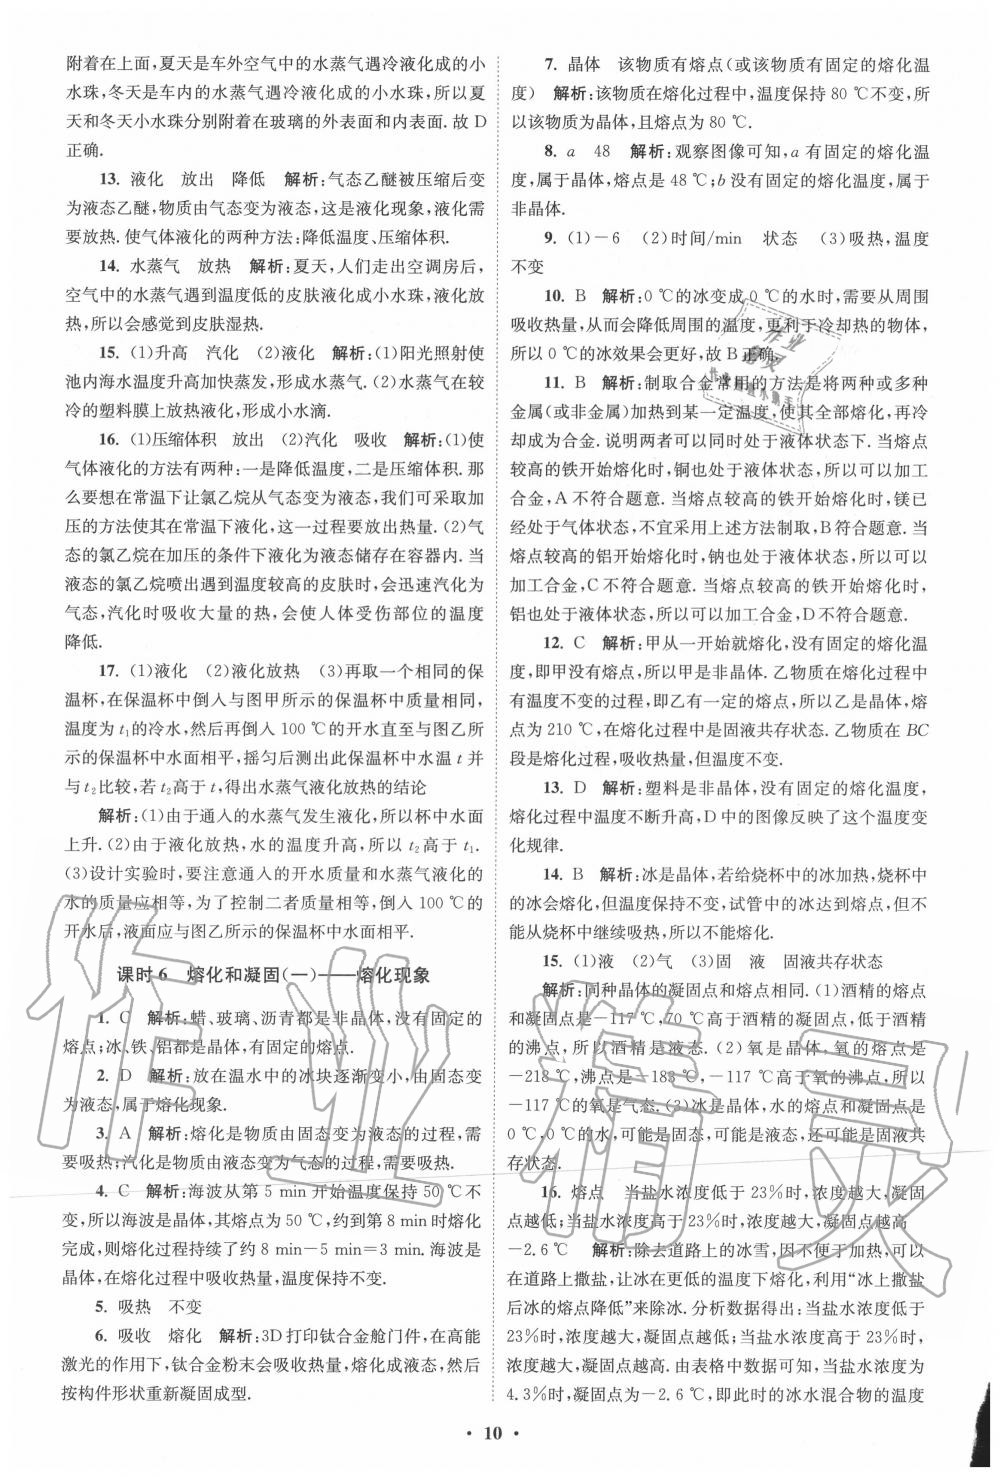 附着在上面,夏天是车外空气中的水蒸气遇冷液化成的小
水珠,冬天是车内的水蒸气遇冷液化成的小水珠,所以夏
天和冬天小水珠分别附着在玻璃的外表面和内表面.故 D
正确.
13. 液化 放出 降低 解析:气态乙醚被压缩后变
为液态乙醚,物质由气态变为液态,这是液化现象,液化需
要放热.使气体液化的两种方法:降低温度、压缩体积.
14. 水蒸气 放热 解析:夏天,人们走出空调房后,
空气中的水蒸气遇到温度低的皮肤液化成小水珠,液化放
热,所以会感觉到皮肤湿热.
15. (1)升高 汽化 (2)液化 解析:(1)阳光照射使
池内海水温度升高加快蒸发,形成水蒸气.(2)水蒸气在较
冷的塑料膜上放热液化,形成小水滴.
16. (1)压缩体积 放出 (2)汽化 吸收 解析:(1)使
气体液化的方法有两种:一是降低温度,二是压缩体积.那
么要想在常温下让氯乙烷从气态变为液态,我们可采取加
压的方法使其在常温下液化,这一过程要放出热量.(2)气
态的氯乙烷在加压的条件下液化为液态储存在容器内.当
液态的氯乙烷喷出遇到温度较高的皮肤时,会迅速汽化为
气态,汽化时吸收大量的热,会使人体受伤部位的温度
降低.
17. (1)液化 (2)液化放热 (3)再取一个相同的保
温杯,在保温杯中倒入与图甲所示的保温杯中质量相同,
温度为 t₁的冷水,然后再倒入 100 ℃的开水直至与图乙所
示的保温杯中水面相平,摇匀后测出此保温杯中水温 t 并
与 t₂比较,若 t₂高于 t,得出水蒸气液化放热的结论
解析:(1)由于通入的水蒸气发生液化,所以杯中水面
上升.(2)由于液化放热,水的温度升高,所以 t₂高于 t₁.
(3)设计实验时,要注意通入的开水质量和水蒸气液化的
水的质量应相等,为了控制二者质量相等,倒入 100 ℃的
开水后,液面应与图乙所示的保温杯中水面相平.
课时 6 熔化和凝固(一)——熔化现象
1. C 解析:蜡、玻璃、沥青都是非晶体,没有固定的
熔点;冰、铁、铝都是晶体,有固定的熔点.
2. D 解析:放在温水中的冰块逐渐变小,由固态变
为液态,属于熔化现象.
3. A 解析:熔化是物质由固态变为液态的过程,需
要吸热;汽化是物质由液态变为气态的过程,需要吸热.
4. C 解析:海波从第 5 min 开始温度保持 50 ℃不
变,所以海波是晶体,其熔点为 50 ℃,约到第 8 min 时熔化
完成,则熔化过程持续了约 8 min－5 min＝3 min.海波是
晶体,在熔化过程中吸收热量,温度保持不变.
5. 吸热 不变
6. 吸收 熔化 解析:3D 打印钛合金舱门件,在高能
激光的作用下,钛合金粉末会吸收热量,熔化成液态,然后
按构件形状重新凝固成型.
7. 晶体 该物质有熔点(或该物质有固定的熔化温
度) 解析:该物质在熔化过程中,温度保持 80 ℃不变,所
以该物质为晶体,且熔点为 80 ℃.
8. a 48 解析:观察图像可知,a 有固定的熔化温
度,属于晶体,熔点是 48 ℃;b 没有固定的熔化温度,属于
非晶体.
9. (1)－6 (2)时间/min 状态 (3)吸热,温度
不变
10. B 解析:0 ℃的冰变成 0 ℃的水时,需要从周围
吸收热量,从而会降低周围的温度,更利于冷却热的物体,
所以 0 ℃的冰效果会更好,故 B 正确.
11. B 解析:制取合金常用的方法是将两种或多种
金属(或非金属)加热到某一定温度,使其全部熔化,再冷
却成为合金.说明两者可以同时处于液体状态下.当熔点
较高的铁开始熔化时,铜也处于液体状态,所以可以加工
合金,A 不符合题意.当熔点较高的铁开始熔化时,镁已
经处于气体状态,不宜采用上述方法制取,B 符合题意.当
熔点较高的铝开始熔化时,钠也处于液体状态,所以可以
加工合金,C 不符合题意.当熔点较高的铁开始熔化时,
铝也处于液体状态,所以可以加工合金,D 不符合题意.
12. C 解析:甲从一开始就熔化,没有固定的熔化温
度,即甲没有熔点,所以甲是非晶体.乙物质在熔化过程中
有温度不变的过程,即乙有一定的熔点,所以乙是晶体,熔
点为 210 ℃,在熔化过程中是固液共存状态.乙物质在 BC
段是熔化过程,吸收热量,但温度不变.
13. D 解析:塑料是非晶体,没有固定的熔化温度,
熔化过程中温度不断升高,D 中的图像反映了这个温度变
化规律.
14. B 解析:冰是晶体,若给烧杯中的冰加热,烧杯中
的冰会熔化,但温度保持不变,试管中的冰达到熔点,但不
能从烧杯中继续吸热,所以不能熔化.
15. (1)液 (2)气 (3)固 液 固液共存状态
解析:同种晶体的凝固点和熔点相同.(1)酒精的熔点
和凝固点是－117 ℃,70 ℃高于酒精的凝固点,低于酒精
的沸点,所以酒精是液态.(2)氧是晶体,氧的熔点是
－218 ℃,沸点是－183 ℃,－117 ℃高于氧的沸点,所以
－117 ℃的氧是气态.(3)冰是晶体,水的熔点和凝固点是
0 ℃,0 ℃的水,可能是固态,可能是液态,还可能是固液共
存状态.
16. 熔点 当盐水浓度低于 23%时,浓度越大,凝固
点越低;当盐水浓度高于 23%时,浓度越大,凝固点越高
－2.6 ℃ 解析:除去道路上的冰雪,因不便于加热,可以
在道路上撒盐,让冰在更低的温度下熔化,利用“冰上撒盐
后冰的熔点降低”来除冰.分析数据得出:当盐水浓度低于
23%时,浓度越大,凝固点越低;当盐水浓度高于 23%时,
浓度越大,凝固点越高.由表格中数据可知,当盐水浓度为
4.3%时,凝固点为－2.6 ℃,即此时的冰水混合物的温度
• 10 •
作业精灵
作业
精灵